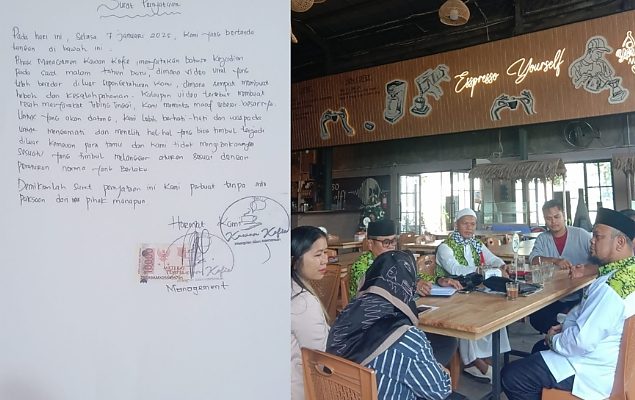 Surat Pernyataan
Pada hari ini, Selasa 7 Januari 2025, kami yang bertanda
tangan di bawah ini:
Pihak Manajemen Kawan Kafe menyatakan bahwa kejadian
pada saat malam tahun baru, dimana video viral yang
telah beredar diluar sepengetahuan kami, dimana sempat membuat
heboh dan kesalahpahaman. Kalaupun video tersebut membuat
resah masyarakat Tebing Tinggi, kami meminta maaf sebesar besarnya.
Untuk yang akan datang, kami lebih berhati-hati dan waspada
untuk mengamati dan meneliti hal-hal yang bisa terjadi
diluar kemauan para tamu dan kami tidak
sesuatu yang timbul melanggar aturan sesuai dengan
peraturan norma yang berlaku
Demikianlah surat pernyataan ini kami perbuat tanpa ada
paksaan dari pihak manapun.
Hormat Kami
Kawan Kafe
10000
Management
Espresso Yourself